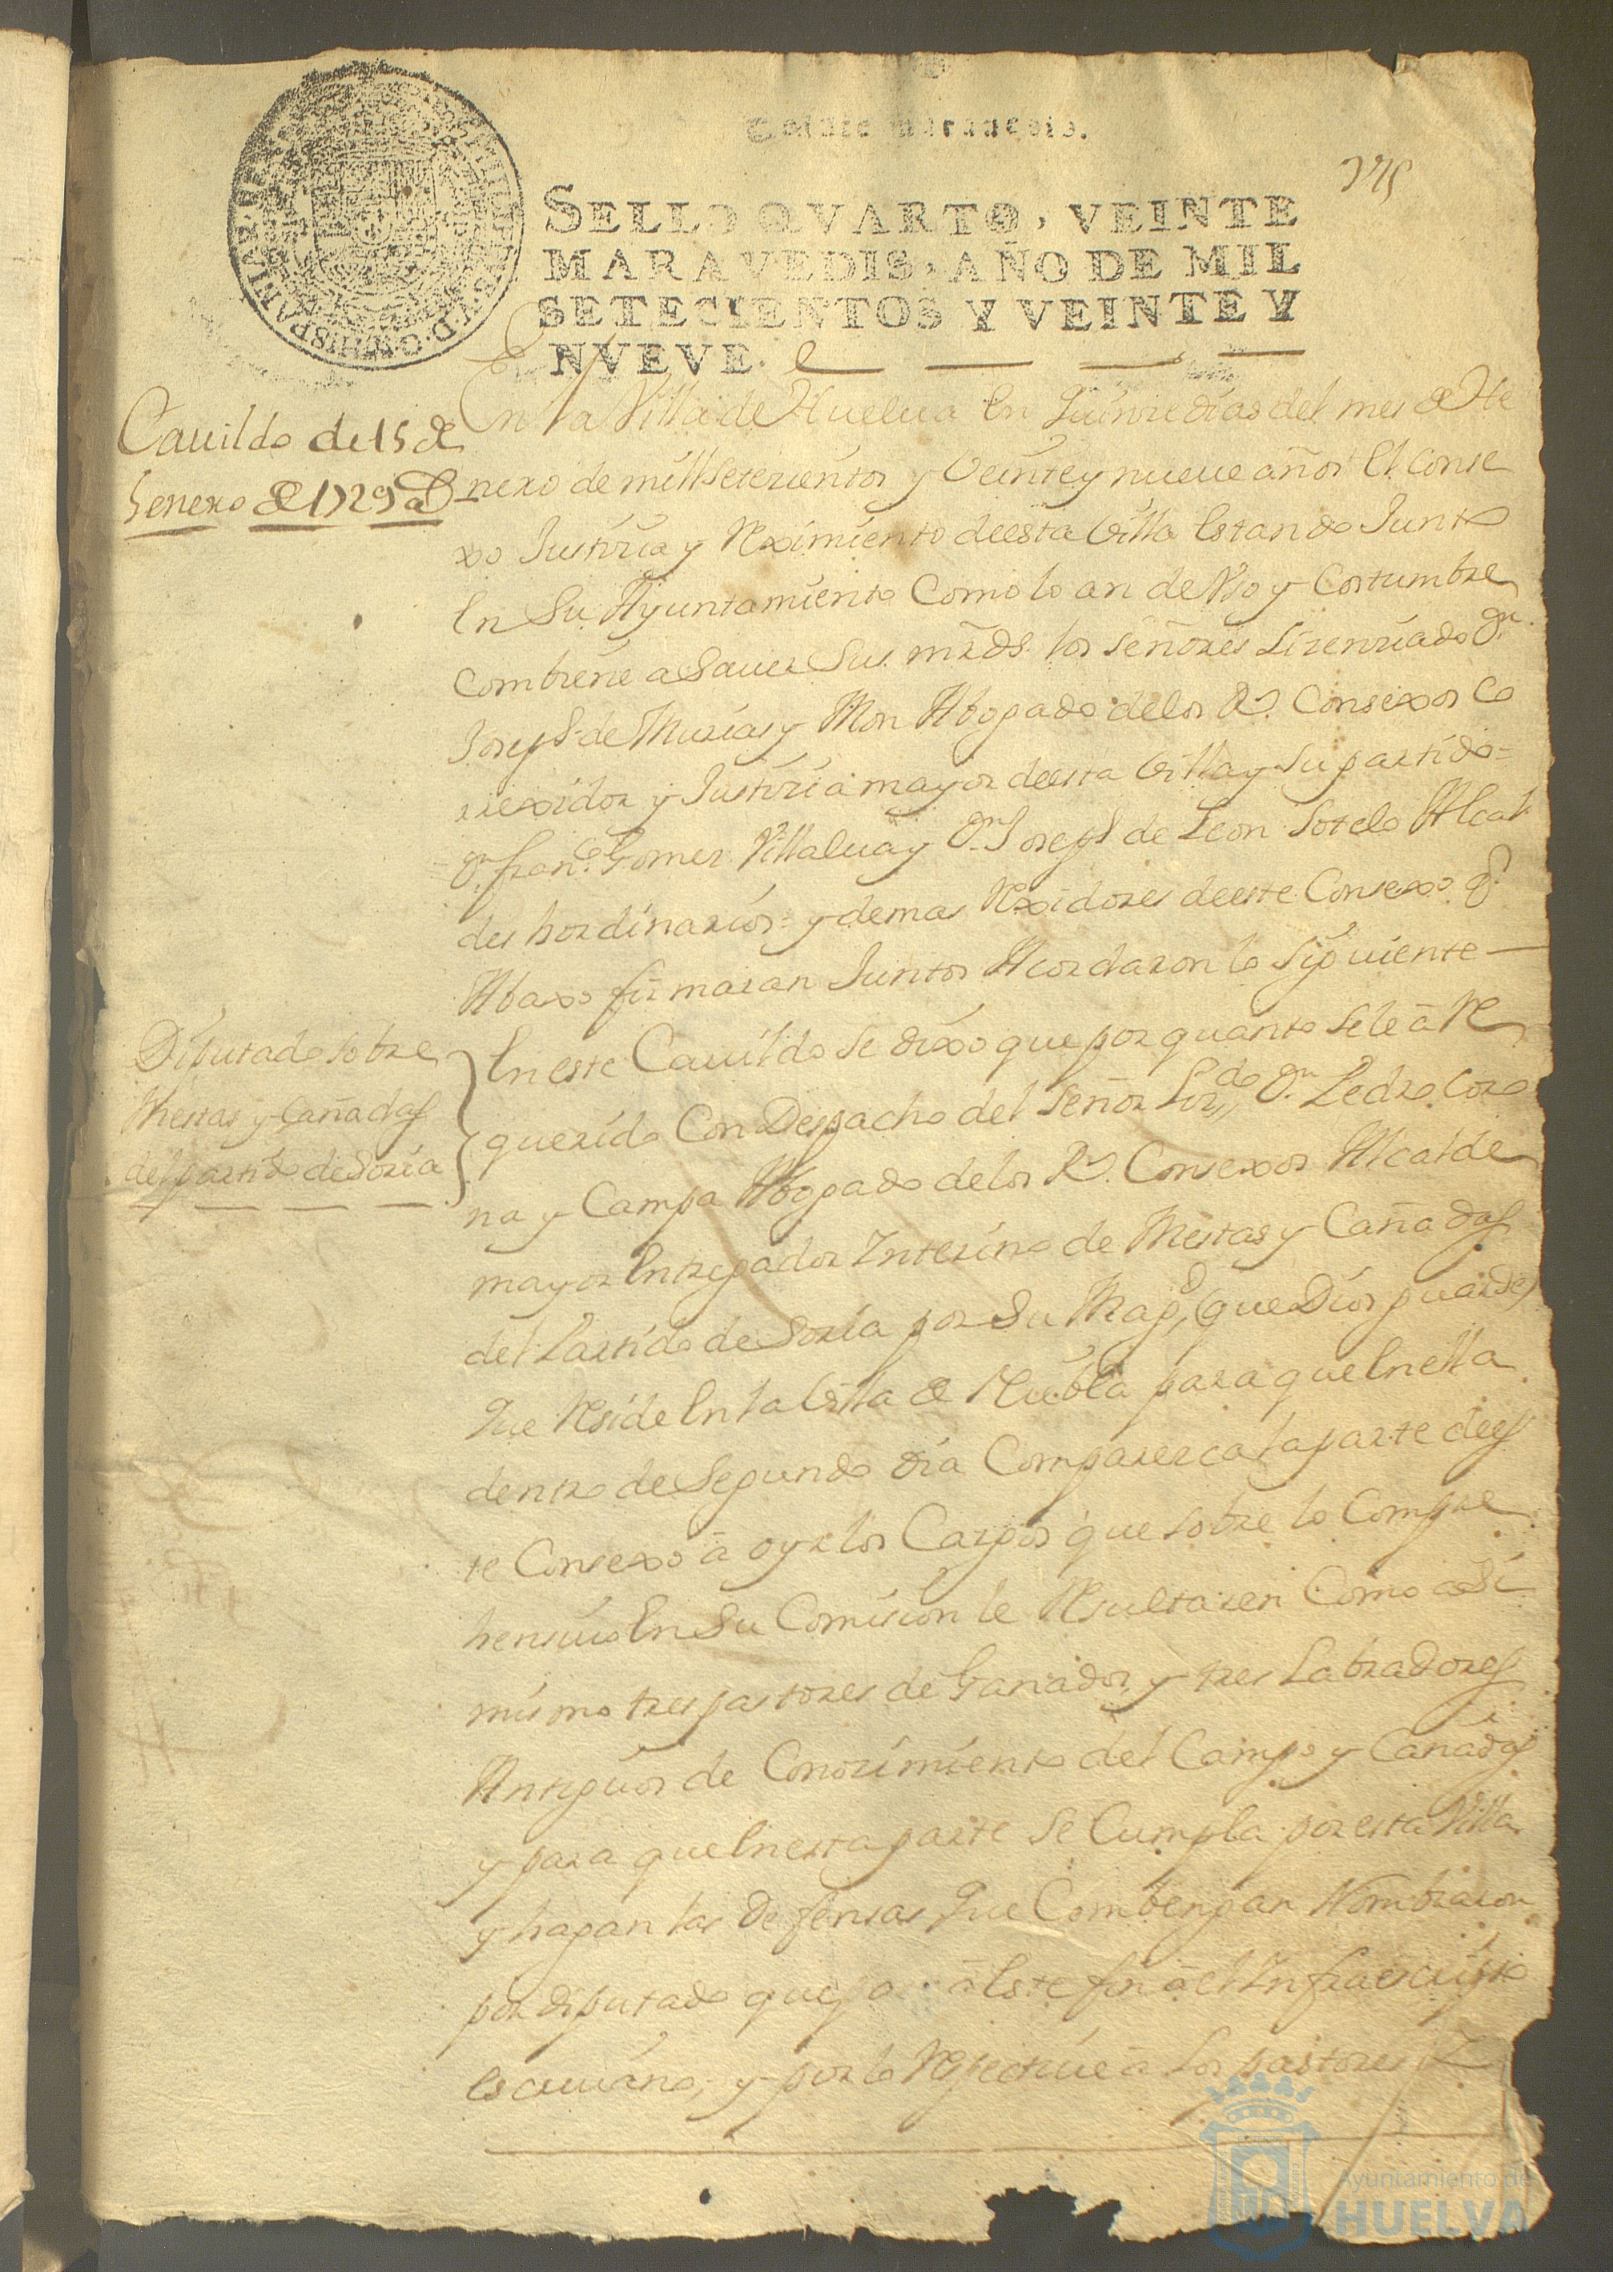 Veinte maravedis.
SELLO QVARTO, VEINTE
MARAVEDIS, AÑO DE MIL
SETECIENTOS Y VEINTE Y
NVEVE.
Cauildo de 15 de
henero de 1729 a
En la Villa de Huelua en quinze dias del mes de He
nero de mill setezientos y veinte y nueue años el Conse
xo Justizia y Reximiento deesta Villa estando Junto
en Su Ayuntamiento Como lo an de Vso y Costumbre
combiene a sauer Sus mrds. los señores Lizenziado Dn.
Joseph de Murias y Mon Abogado delos Rs. Consexos Co
rrexidor y Justizia mayor deesta Villa y Su partido =
Dn. Franco. Gomez Villalua y Dn. Joseph de Leon Sotelo Alcal
des hordinarios = y demas Rexidores deeste Consexo q.
Abaxo firmaran Juntos Acordaron lo Siguiente
Diputado sobre
Mestas y Cañadas
del partido de Soria
En este Cauildo se dixo que por quanto se le à Re
querido Con Despacho del Señor Lizdo. Dn. Pedro Coro
na y Campa Abogado delos Rs. Consexos Alcalde
mayor Entregador Interino de Mestas y Cañadas
del Partido de Soria por Su Magd. (que Dios guarde)
que Reside en la Villa de Niebla para que en ella
dentro de Segundo dia Comparezca la parte dees
te Consexo à oyr los Cargos que sobre lo Compre
hensiuo en Su Comision le Resultaren Como asi
mismo tres pastores de Ganados, y tres Labradores
Antiguos de Conozimiento del Campo y Cañadas
y para que en esta parte Se Cumpla por esta Villa
y hagan las defensas que Combengan Nombraron
por diputado que pa à Este fin à el Infraescripto
escriuano, y por lo Respectiue à Los pastores
Ayuntamiento de
HUELVA